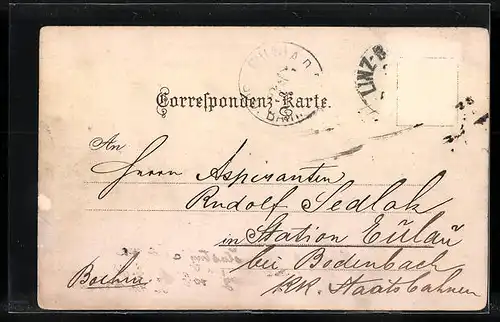 LINZ
Correspondenz-Karte.
An
Herrn Aspiranten
Rudolf Sedlak
in Station Eulau
bei Bodenbach
Boehm
KK. Staatsbahnen